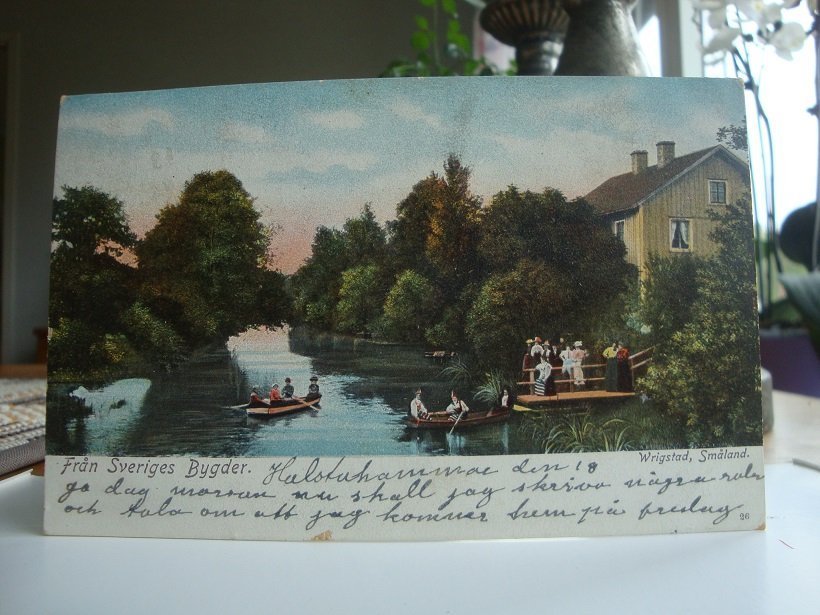 Från Sveriges Bygder.
Wrigstad, Småland.
Halstahammar den 18
go dag morsan nu skall jag skriva några rader
och tala om att jag kommer hem på fredag
26